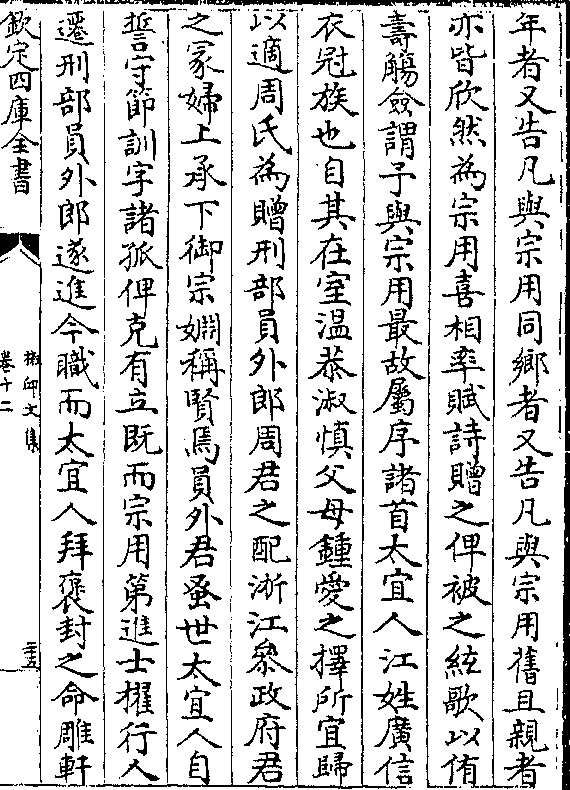 年者又告凡與宗用同鄉者又告凡與宗用舊且親者
亦皆欣然為宗用喜相率賦詩贈之俾被之絃歌以侑
壽觴僉謂予與宗用最故屬序諸首太宜人江姓廣信
衣冠族也自其在室溫恭淑慎父母鍾愛之擇所宜歸
以適周氏為贈刑部員外郎周君之配浙江叅政府君
之冡婦上承下御宗婣稱賢焉員外君蚤世太宜人自
誓守節訓字諸孤俾克有立既而宗用第進士擢行人
遷刑部員外郎遂進今職而太宜人拜褒封之命雕軒
欽定四庫全書
椒邱文集
卷十二
二十五